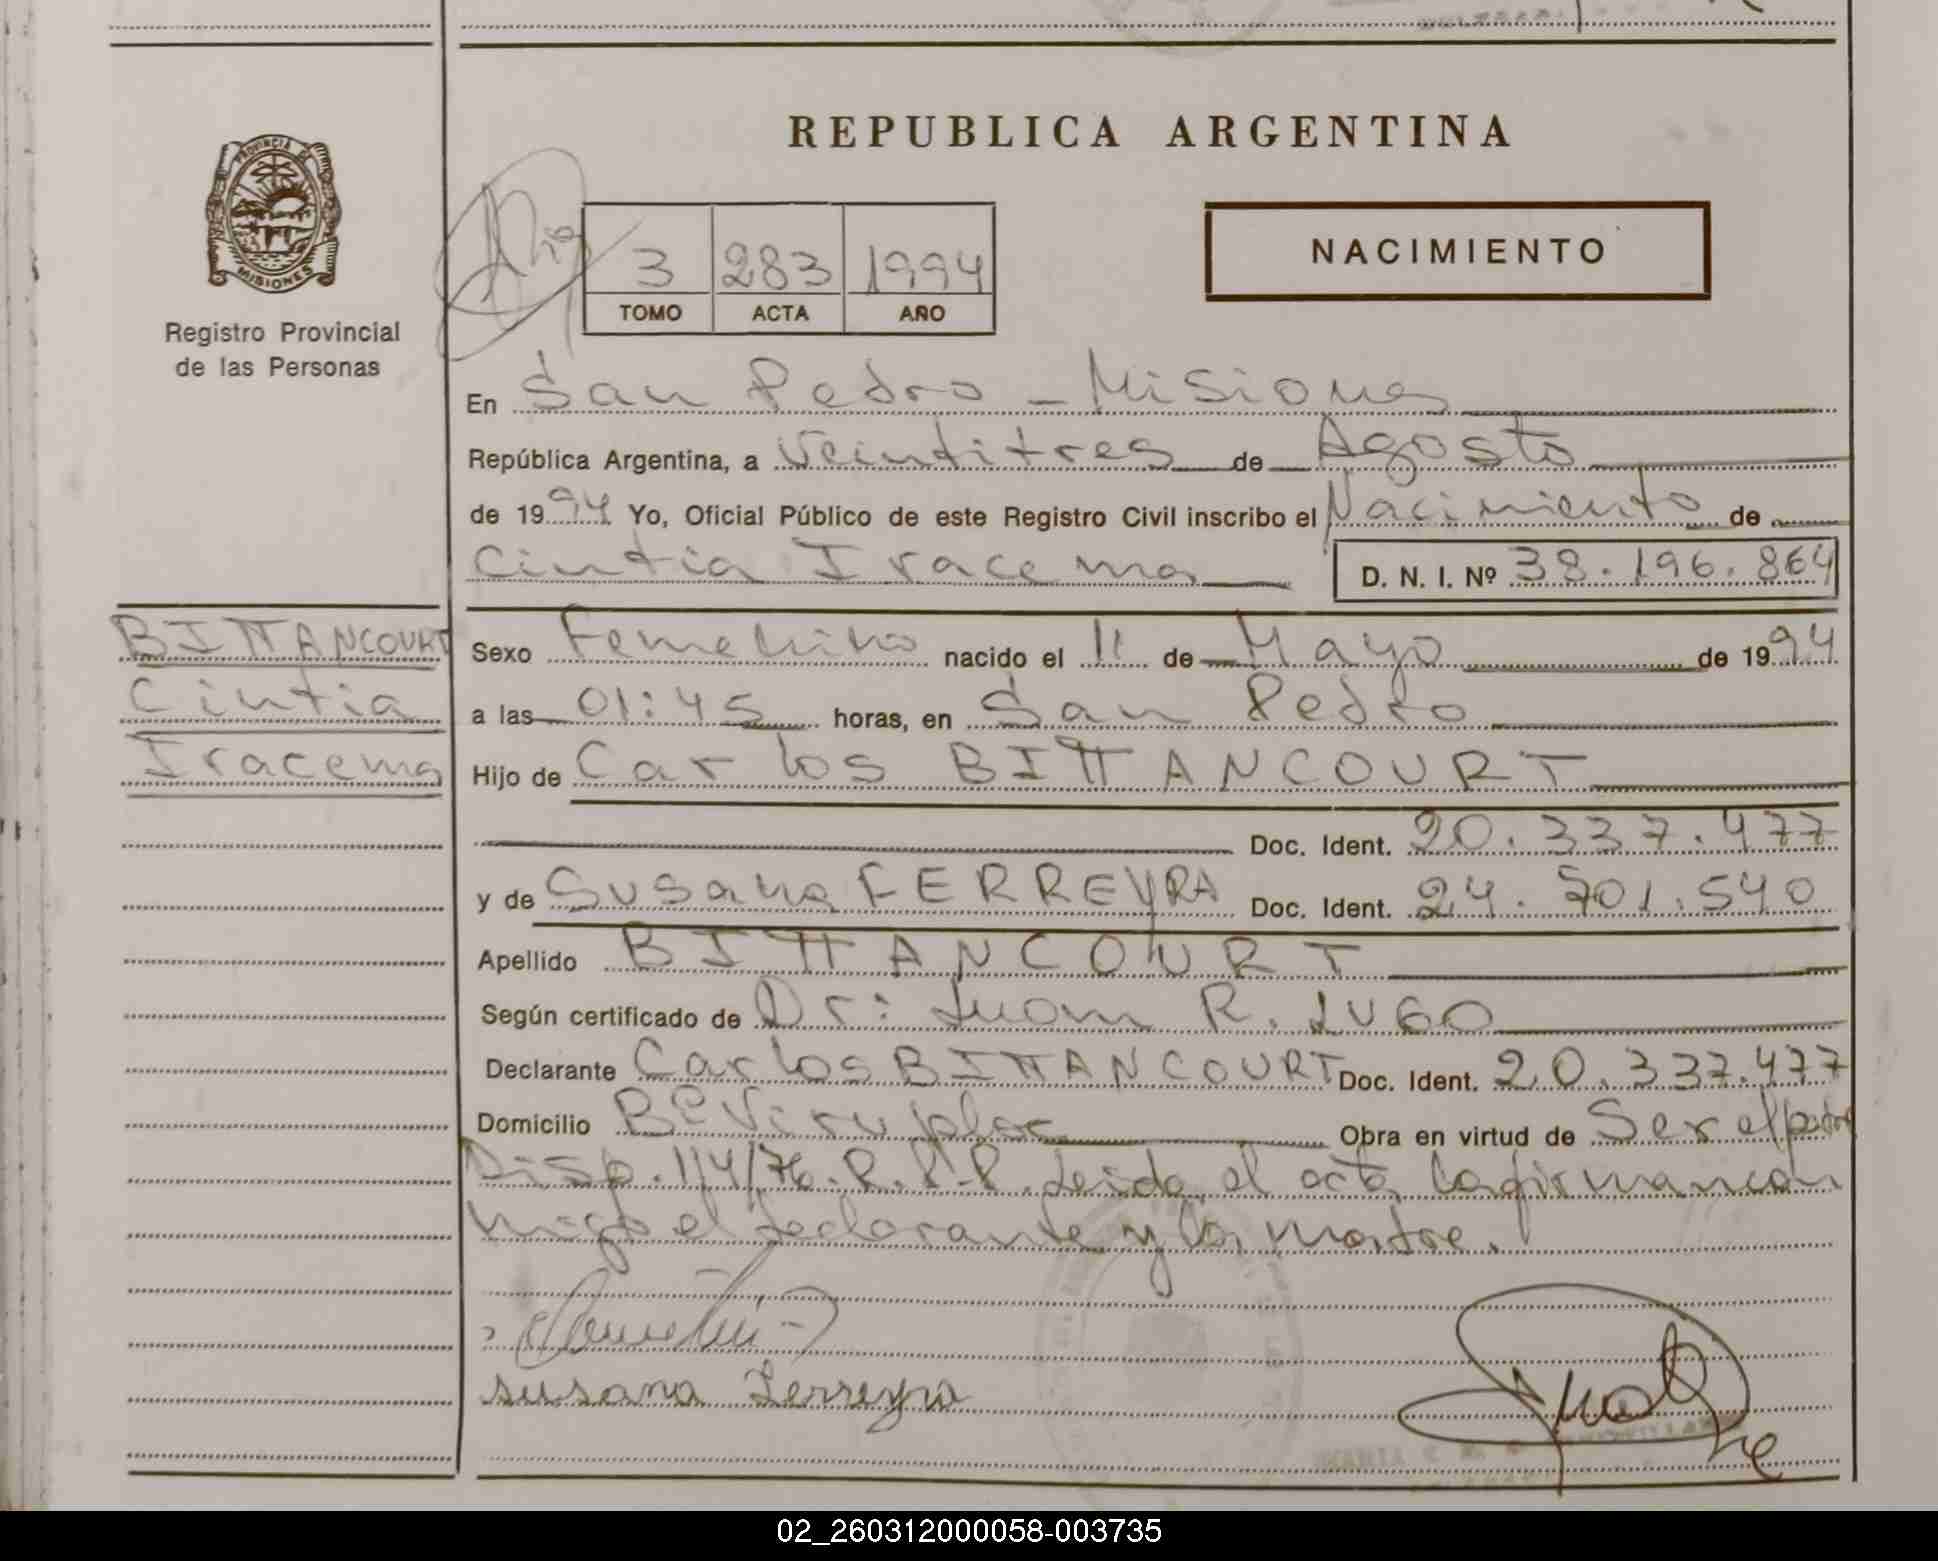 REPUBLICA ARGENTINA
PROVINCIA DE
MISIONES
Registro Provincial
de las Personas
3 283 1994
TOMO ACTA AÑO
NACIMIENTO
En San Pedro - Misiones
República Argentina, a Veintitres de Agosto
de 1994 Yo, Oficial Público de este Registro Civil inscribo el Nacimiento de
Cintia Iracema D. N. I. Nº 38.196.864
BITTANCOURT
Cintia
Iracema
Sexo Femenino nacido el 11 de Mayo de 1994
a las 01:45 horas, en San Pedro
Hijo de Carlos BITTANCOURT
Doc. Ident. 20.337.477
y de Susana FERREYRA Doc. Ident. 24.701.540
Apellido BITTANCOURT
Según certificado de Dr: Juan R. LUGO
Declarante Carlos BITTANCOURT Doc. Ident. 20.337.477
Domicilio Bº Obra en virtud de Ser el padre
Disp. 114/76. R.P.P. Leida el acta la firman con
migo el declarante y la madre.
susana Ferreyra
02_260312000058-003735